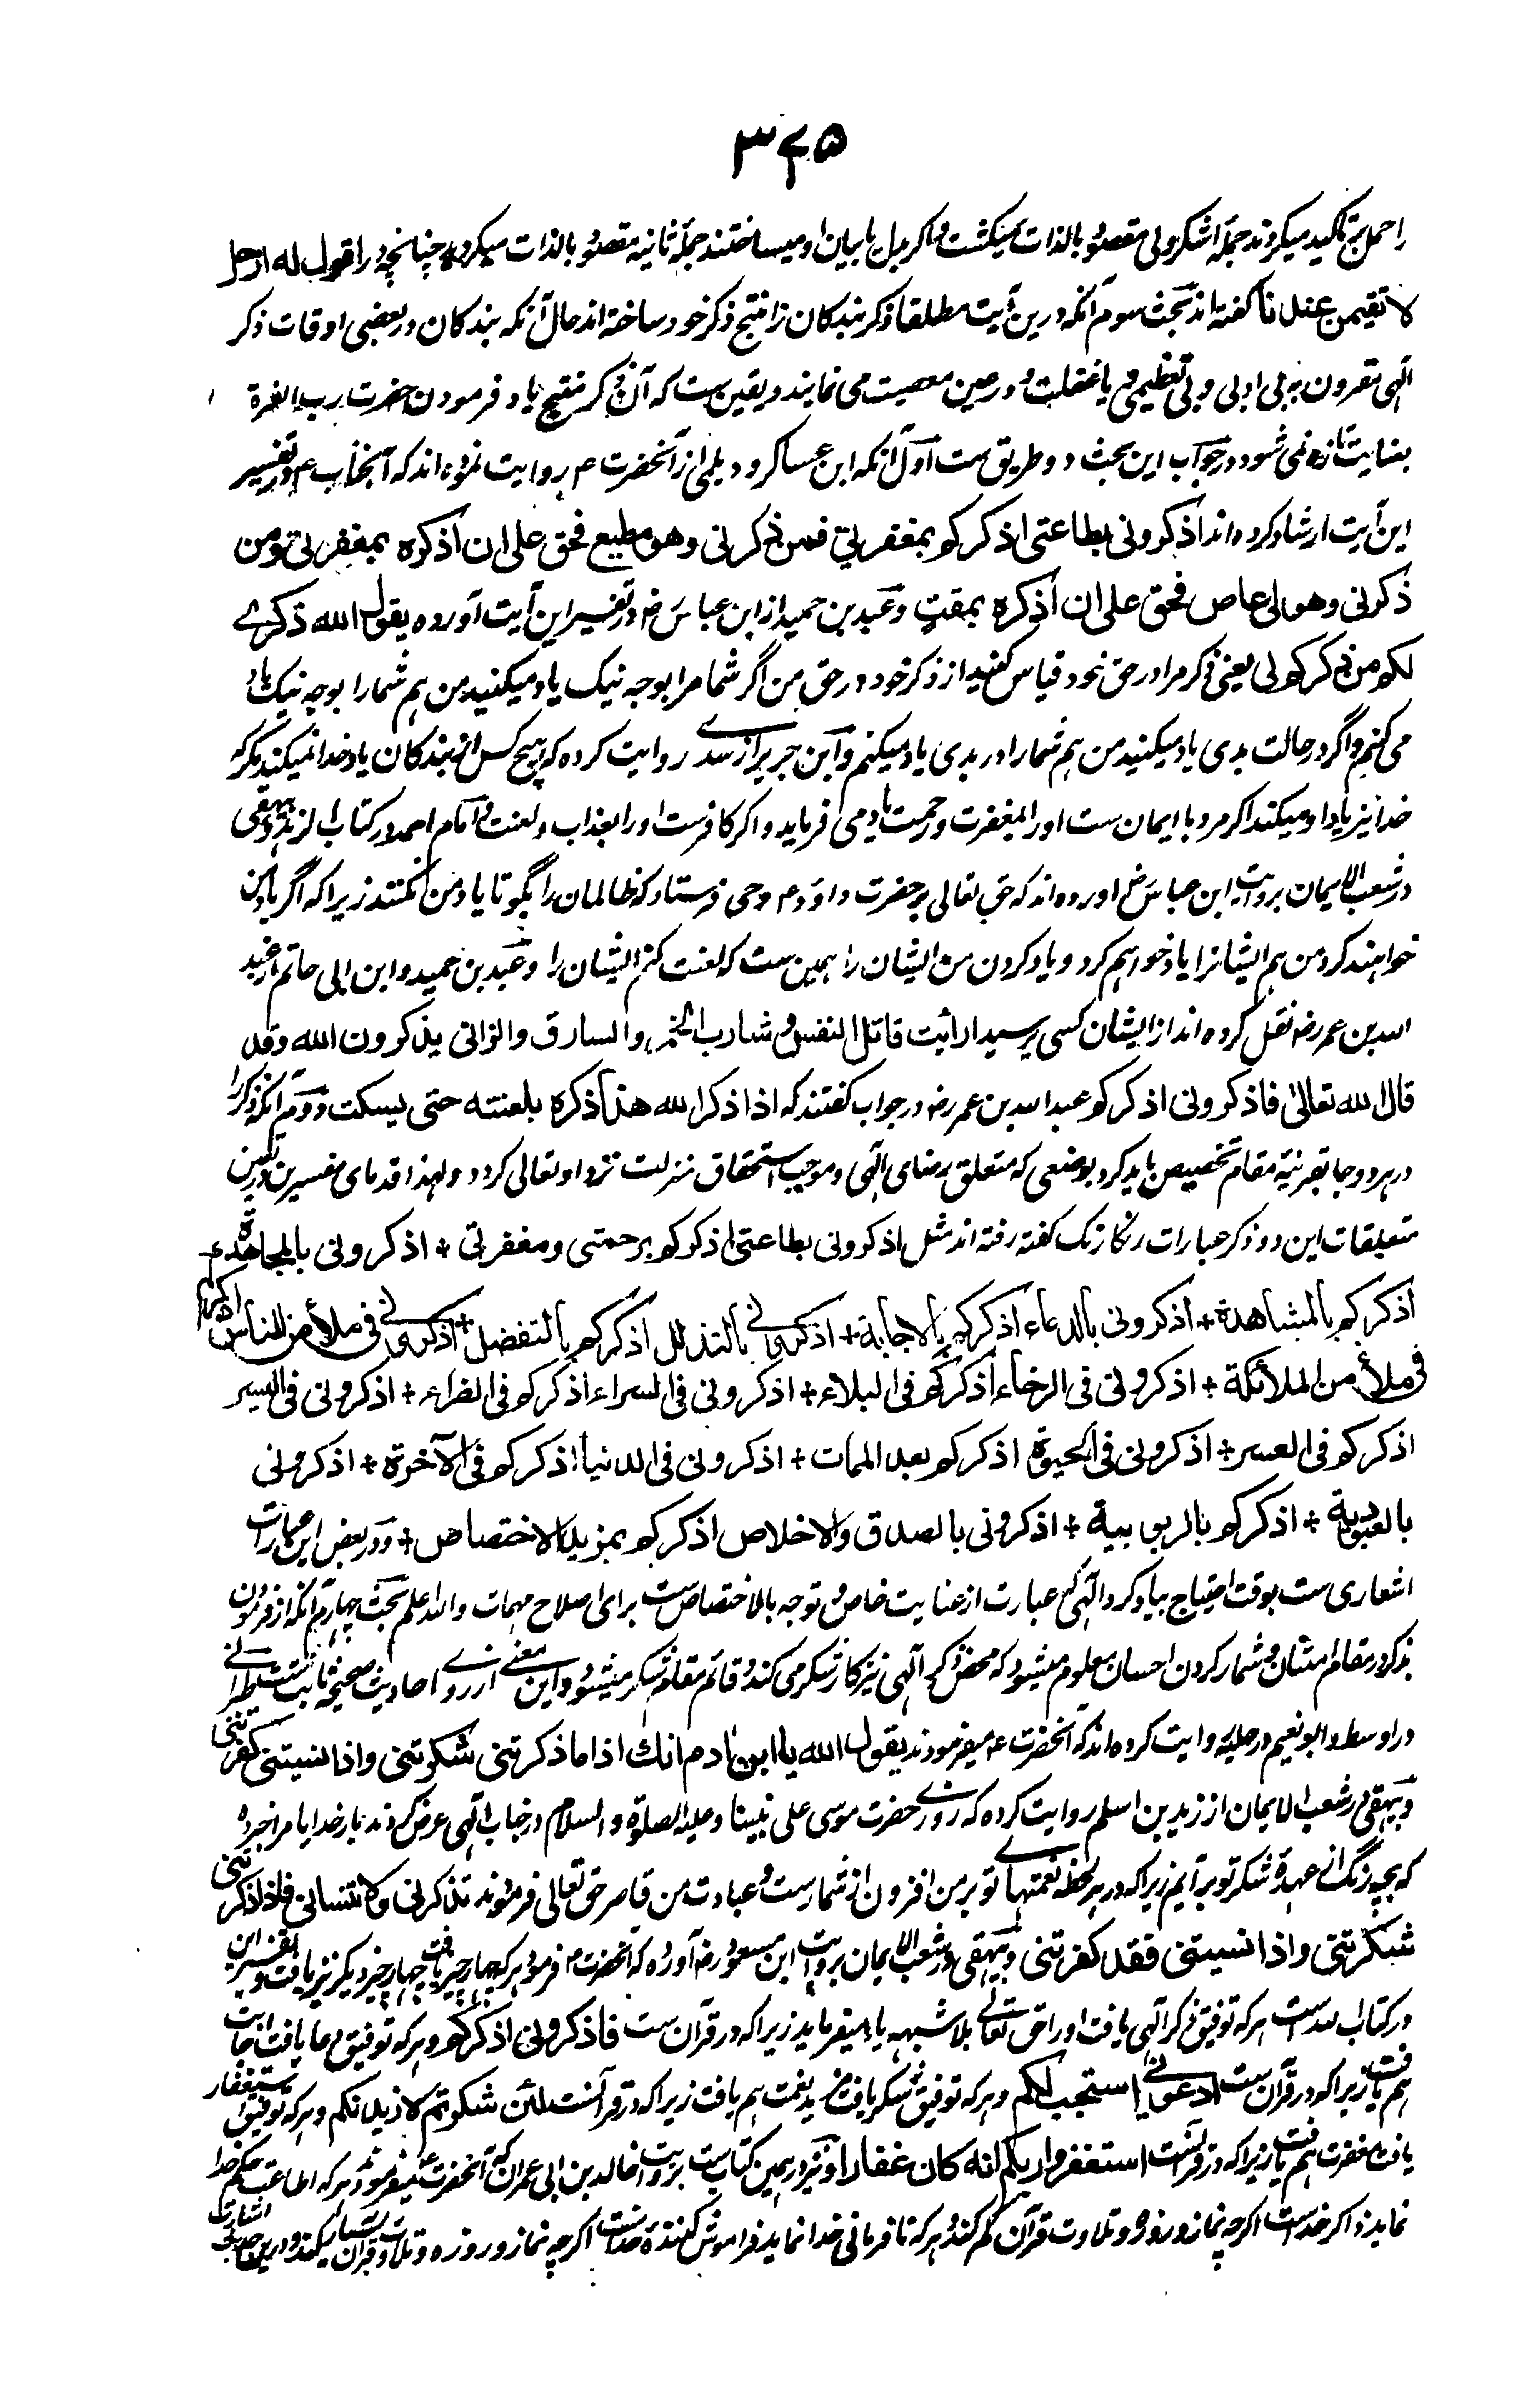 ۳۴۵
را حمل بر تاکید میکردند جملهٔ اشکرولی مقصود بالذات نمیگشت و اگر بدل یا بیان او میساختند جملهٔ ثانیه مقصود بالذات میگردید چنانچه در اقول له ارحل
لا تقیمن عندنا گفته اند بحث سوم آنکه درین آیت مطلقا ذکر بندگان را منتج ذکر خود ساخته اند حال آنکه بندگان در بعضی اوقات ذکر
الٰهی مقرون به بی ادبی و بی تعظیمی یا غفلت و در عین معصیت می نمایند و یقین ست که آن ذکر منتج یاد فرمودن حضرت رب العزة
بعنایت تازه نمی شود در جواب این بحث دو طریق ست اول آنکه ابن عساکر و دیلمی از آنحضرت م روایت نموده اند که آنجناب ء در تفسیر
این آیت ارشاد کرده اند اذکرونی بطاعتی اذکرکم بمغفرتی فمن ذکرنی وهو مطیع فحق علی ان اذکره بمغفرتی ومن
ذکرنی وهو لی عاص فحق علی ان اذکره بمقت و عبد بن حمید از ابن عباس رض در تفسیر این آیت آورده یقول الله ذکری
لکم من ذکرکم لی یعنی ذکر مرا در حق خود قیاس کنید از ذکر خود در حق من اگر شما مرا بوجه نیک یاد میکنید من هم شما را بوجه نیک یاد
می کنم و اگر در حالت بدی یاد میکنید من هم شما را در بدی یاد میکنم و ابن جریر از سدی روایت کرده که هیچ کس از بندگان یاد خدا نمیکند مگر که
خدا نیز یاد او میکند اگر مرد با ایمان ست او را بمغفرت و رحمت یاد می فرماید و اگر کافرست او را بعذاب و لعنت و امام احمد در کتاب الزهد و بیهقی
در شعب الایمان بروایت ابن عباس رض آورده اند که حق تعالی بر حضرت داؤد ء وحی فرستاد که ظالمان را بگو تا یاد من نکنند زیرا که اگر یاد من
خواهند کرد من هم ایشانرا یاد خواهم کرد و یاد کردن من ایشان را همین ست که لعنت کنم ایشان را و عبد بن حمید و ابن ابی حاتم از عبد
الله بن عمر رض نقل کرده اند از ایشان کسی پرسید ارائیت قاتل النفس و شارب الخمر والسارق والزانی یذکرون الله وقد
قال الله تعالیٰ فاذکرونی اذکرکم عبد الله بن عمر رض در جواب گفتند که اذا ذکر الله هذا ذکره بلعنته حتی یسکت دوم آنکه ذکر را
در هر دو جا بقرینهٔ مقام تخصیص باید کرد بوضعی که متعلق رضای الٰهی و موجب استحقاق منزلت نزد او تعالی گردد و لهذا قدمای مفسرین در تعیین
متعلقات این دو ذکر عبارات رنگارنگ گفته رفته اند مثل اذکرونی بطاعتی اذکرکم برحمتی و مغفرتی + اذکرونی بالمجاهدة
اذکرکم بالمشاهدة + اذکرونی بالدعاء اذکرکم بالاجابة + اذکرونی بالتذلل اذکرکم بالتفضل + اذکرونی فی ملأ من الناس اذکرکم
فی ملأ من الملائکة + اذکرونی فی الرخاء اذکرکم فی البلاء + اذکرونی فی السراء اذکرکم فی الضراء + اذکرونی فی الیسر
اذکرکم فی العسر + اذکرونی فی الحیوة اذکرکم بعد الممات + اذکرونی فی الدنیا اذکرکم فی الآخرة + اذکرونی
بالعبودیة + اذکرکم بالربوبیة + اذکرونی بالصدق والاخلاص اذکرکم بمزید الاختصاص + و در بعض این عبارات
اشعاری ست بوقت احتیاج بیاد کرد الٰهی که عبارت از عنایت خاص و توجه بالاختصاص ست برای اصلاح مهمات والله اعلم بحث چهارم آنکه از فرمودن
ذکر در مقام امتنان و شمار کردن احسان معلوم میشود که محض ذکر الٰهی نیز کار شکر می کند و قائم مقام شکر میشود و این معنی از روی احادیث صحیحه ثابت ست طبرانی
در اوسط و ابو نعیم در حلیه روایت کرده اند که آنحضرت ء میفرمودند یقول الله یا ابن ادم انک اذا ما ذکرتنی شکرتنی واذا نسیتنی کفرتنی
و بیهقی در شعب الایمان از زید بن اسلم روایت کرده که روزی حضرت موسی علی نبینا و علیه الصلوة والسلام در جناب الٰهی عرض کردند بار خدایا مرا خبر ده
که بچه رنگ از عهدهٔ شکر تو برآیم زیرا که در هر لحظه نعمتهای تو بر من افزون از شمارست و عبادت من قاصر حق تعالی فرمودند تذکرنی ولا تنسانی فاذا ذکرتنی
شکرتنی واذا نسیتنی فقد کفرتنی و بیهقی در شعب الایمان بروایت ابن مسعود رض آورده که آنحضرت م فرمود هر که چهار چیز یافت چهار چیز دیگر نیز یافت و تفسیر این
در کتاب الله ست هر که توفیق ذکر الٰهی یافت او را حق تعالی بلا شبهه یاد میفرماید زیرا که در قرآن ست فاذکرونی اذکرکم و هر که توفیق دعا یافت اجابت
هم یافت زیرا که در قرآن ست ادعونی استجب لکم و هر که توفیق شکر یافت مزید نعمت هم یافت زیرا که در قرآنست لئن شکرتم لازیدنکم و هر که توفیق استغفار
یافت مغفرت هم یافت زیرا که در قرآنست استغفروا ربکم انه کان غفارا و نیز در همین کتاب ست بروایت خالد بن ابی عمران که آنحضرت ء میفرمود هر که اطاعت حکم خدا
نماید ذاکر خداست اگرچه نماز و روزه و تلاوت قرآن کم کند و هر که نافرمانی خدا نماید فراموش کنندهٔ خداست اگرچه نماز و روزه و تلاوت قرآن بسیار میکند و درین حدیث اشارت